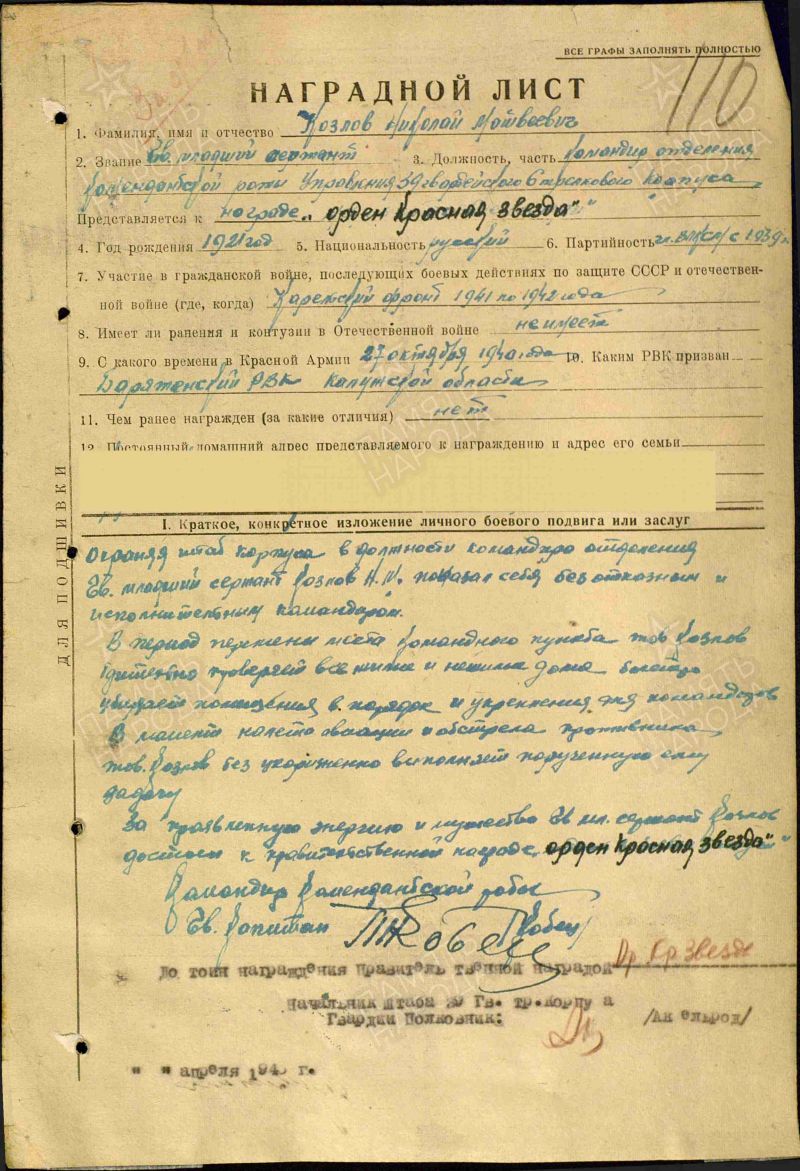 ВСЕ ГРАФЫ ЗАПОЛНЯТЬ ПОЛНОСТЬЮ
110
НАГРАДНОЙ ЛИСТ
1. Фамилия, имя и отчество Козлов Николай Матвеевич
2. Звание Гв. младший сержант 3. Должность, часть Командир отделения
Комендантской роты Управления 39 гвардейского стрелкового корпуса
Представляется к награде „орден Красная звезда"
4. Год рождения 1921 год 5. Национальность русский 6. Партийность чл. ВЛКСМ с 1939 г
7. Участие в гражданской войне, последующих боевых действиях по защите СССР и отечествен-
ной войне (где, когда) Карельский фронт 1941 по 1942 года
8. Имеет ли ранения и контузии в Отечественной войне не имеет
9. С какого времени в Красной Армии 27 октября 1940 года 10. Каким РВК призван
Барятенский РВК Калужской области
11. Чем ранее награжден (за какие отличия) нет
12. Постоянный домашний адрес представляемого к награждению и адрес его семьи
ДЛЯ ПОДШИВКИ
I. Краткое, конкретное изложение личного боевого подвига или заслуг
Охраняя штаб корпуса в должности командира отделения
Гв. младший сержант Козлов Н.М. показал себя безотказным и
исполнительным командиром.
В период перемены места Командного пункта тов. Козлов
бдительно проверяет все жилые и нежилые дома быстро
убирает помещения в порядок и укрепления для командиров
В момент налета авиации и обстрела противника
тов. Козлов без укоризненно выполняет порученную ему
задачу
За проявленную энергию и мужество Гв мл. сержант Козлов
достоин к правительственной награде „орден Красная звезда"
Командир Комендантской роты
Гв. Капитан /Кобец/
До тоин награждения Правитель твенной наградой Ор. Кр Звезде
Начальник штаба 39 Гв. тр.корпу а
Гвардии Полковник: /Ак ельрод/
" " апреля 194 г.